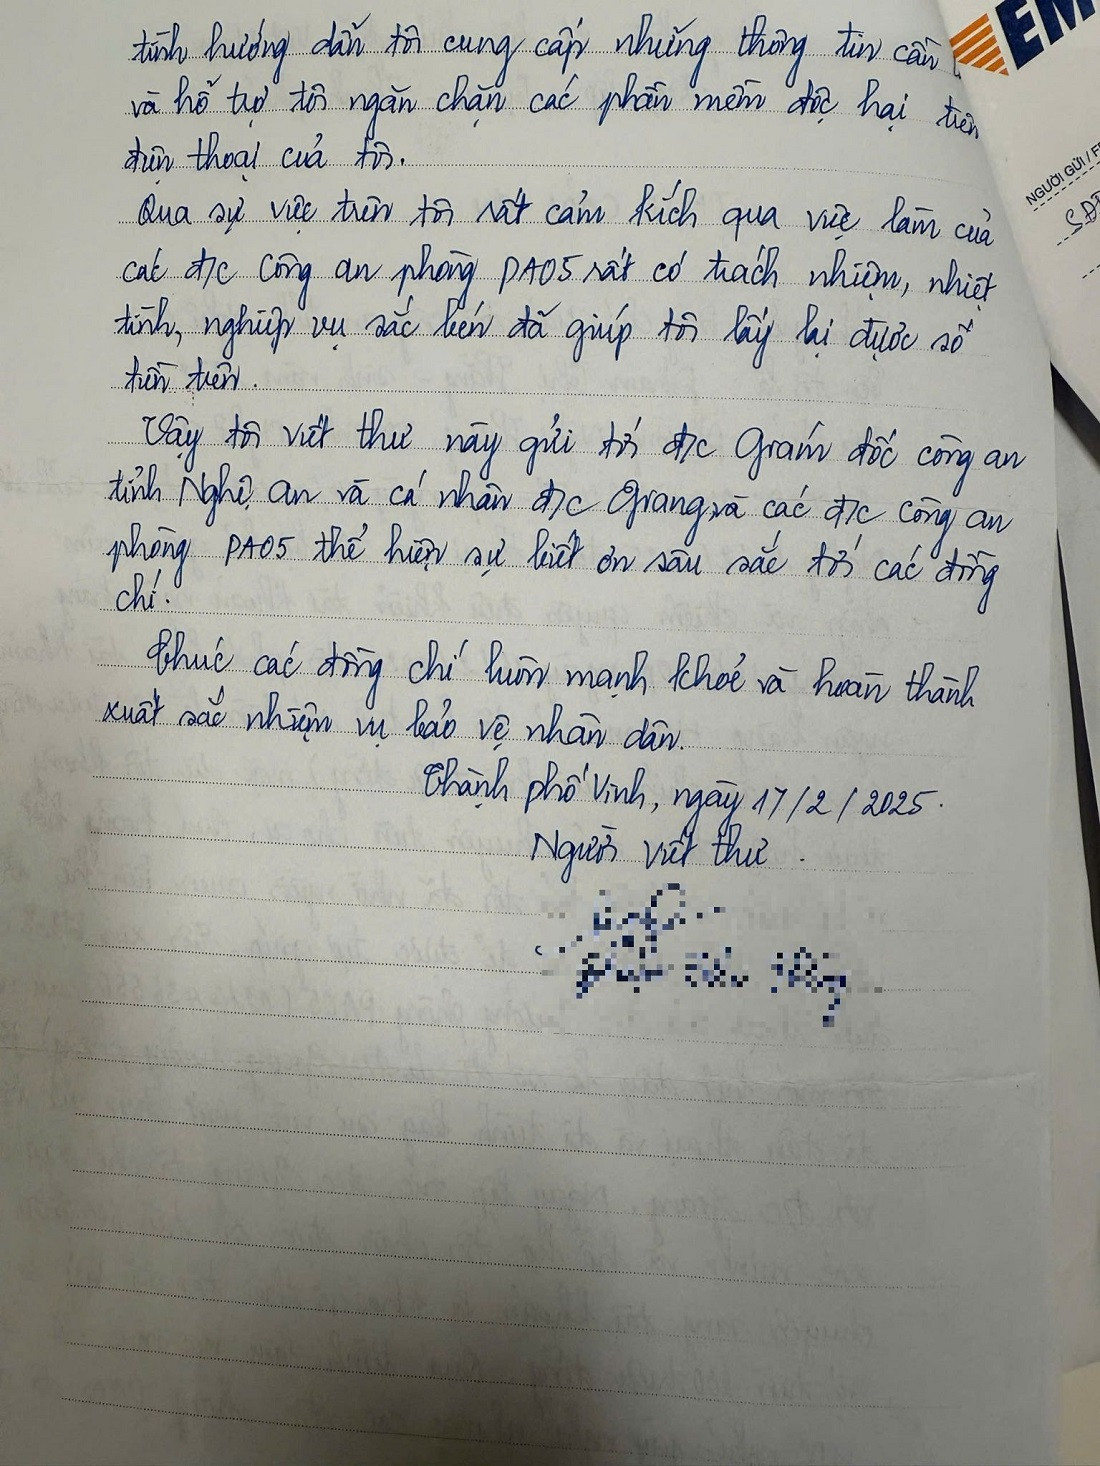 tình hướng dẫn tôi cung cấp những thông tin cần
và hỗ trợ tôi ngăn chặn các phần mềm độc hại trên
điện thoại của tôi.
Qua sự việc trên tôi rất cảm kích qua việc làm của
các đ/c Công an phòng PA05 rất có trách nhiệm, nhiệt
tình, nghiệp vụ sắc bén đã giúp tôi lấy lại được số
tiền trên.
Vậy tôi viết thư này gửi tới đ/c Giám đốc công an
tỉnh Nghệ An và cá nhân đ/c Giang, và các đ/c Công an
phòng PA05 thể hiện sự biết ơn sâu sắc tới các đồng
chí.
Chúc các đồng chí luôn mạnh khoẻ và hoàn thành
xuất sắc nhiệm vụ bảo vệ nhân dân.
Thành phố Vinh, ngày 17/2/2025.
Người viết thư.
EM
NGƯỜI GỬI / F